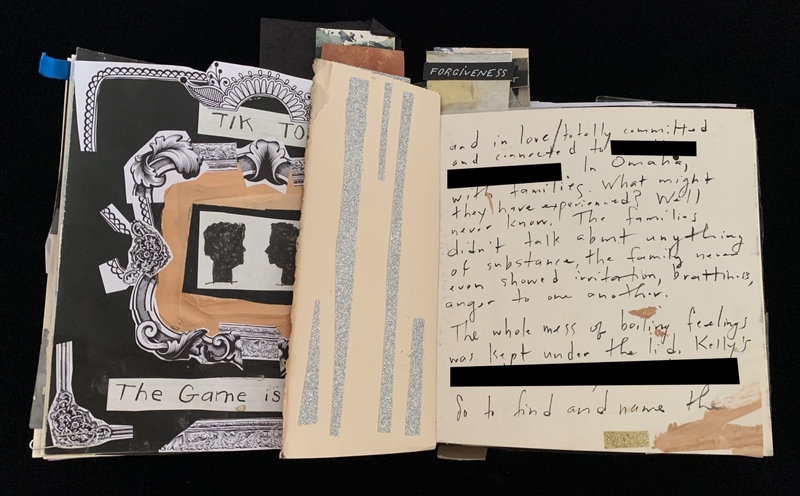 FORGIVENESS
TIK TO
The Game is
and in love/totally committed
and connected to
In Omaha,
with families. What might
they have experienced? We'll
never know. The families
didn't talk about anything
of substance, the family never
even showed irritation, brattiness,
anger to one another.
The whole mess of boiling feelings
was kept under the lid. Kelly's
So to find and name the